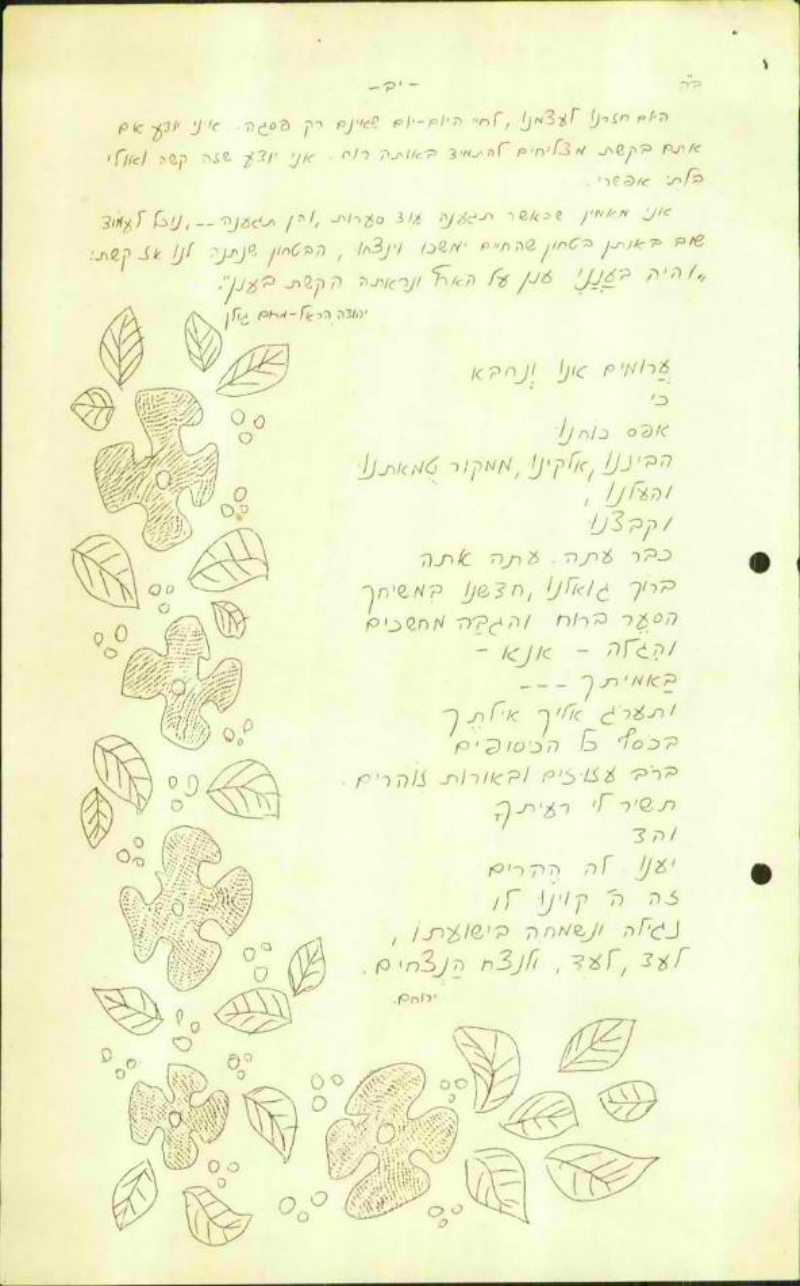 ב"ה
- יב -
היום חזרנו לעצמנו, לחיי היום-יום שאינם רק פסגה. איני יודע אם
אתם בקשת מצליחים להתמיד באותה רוח. אני יודע שזה קשה ואולי
בלתי אפשרי.
אני מאמין שכאשר תגענה עוד סערות, והן תגענה --, נוכל לעמוד
שוב באותן בטחון שהחיים ימשכו וינצחו, הבטחון שנתנה לנו אז קשת:
"והיה בְּעַנְנִי ענן על הארץ ונראתה הקשת בענן".
יהודה הראל-מרום גולן
עֲרומים אנו וָנחבא
כי
אפס כוחנו
הביננו, אלקינו, ממקור טֻמאתנו
והעלנו,
וקבצנו
כבר עתה. עתה אתה
ברוך גואלנו, חדשנו בִּמשיחך
הסעֵר ברוח והגבַּה מחשכים
והִגלה - אנא -
בַּאמיתך ---
ותערֹג אליך אילתֶך
בכסוף כל הכיסופים
ברֹב עזוזים ובאורות זוהרים.
תשיר לי רעיתךָ
והד
יענו לה הֶהרים
זה ה' קוינו לו
נגילה ונשמחה בישועתו,
לעד, לעד, ולנצח הַנצחים.
ירוחם.